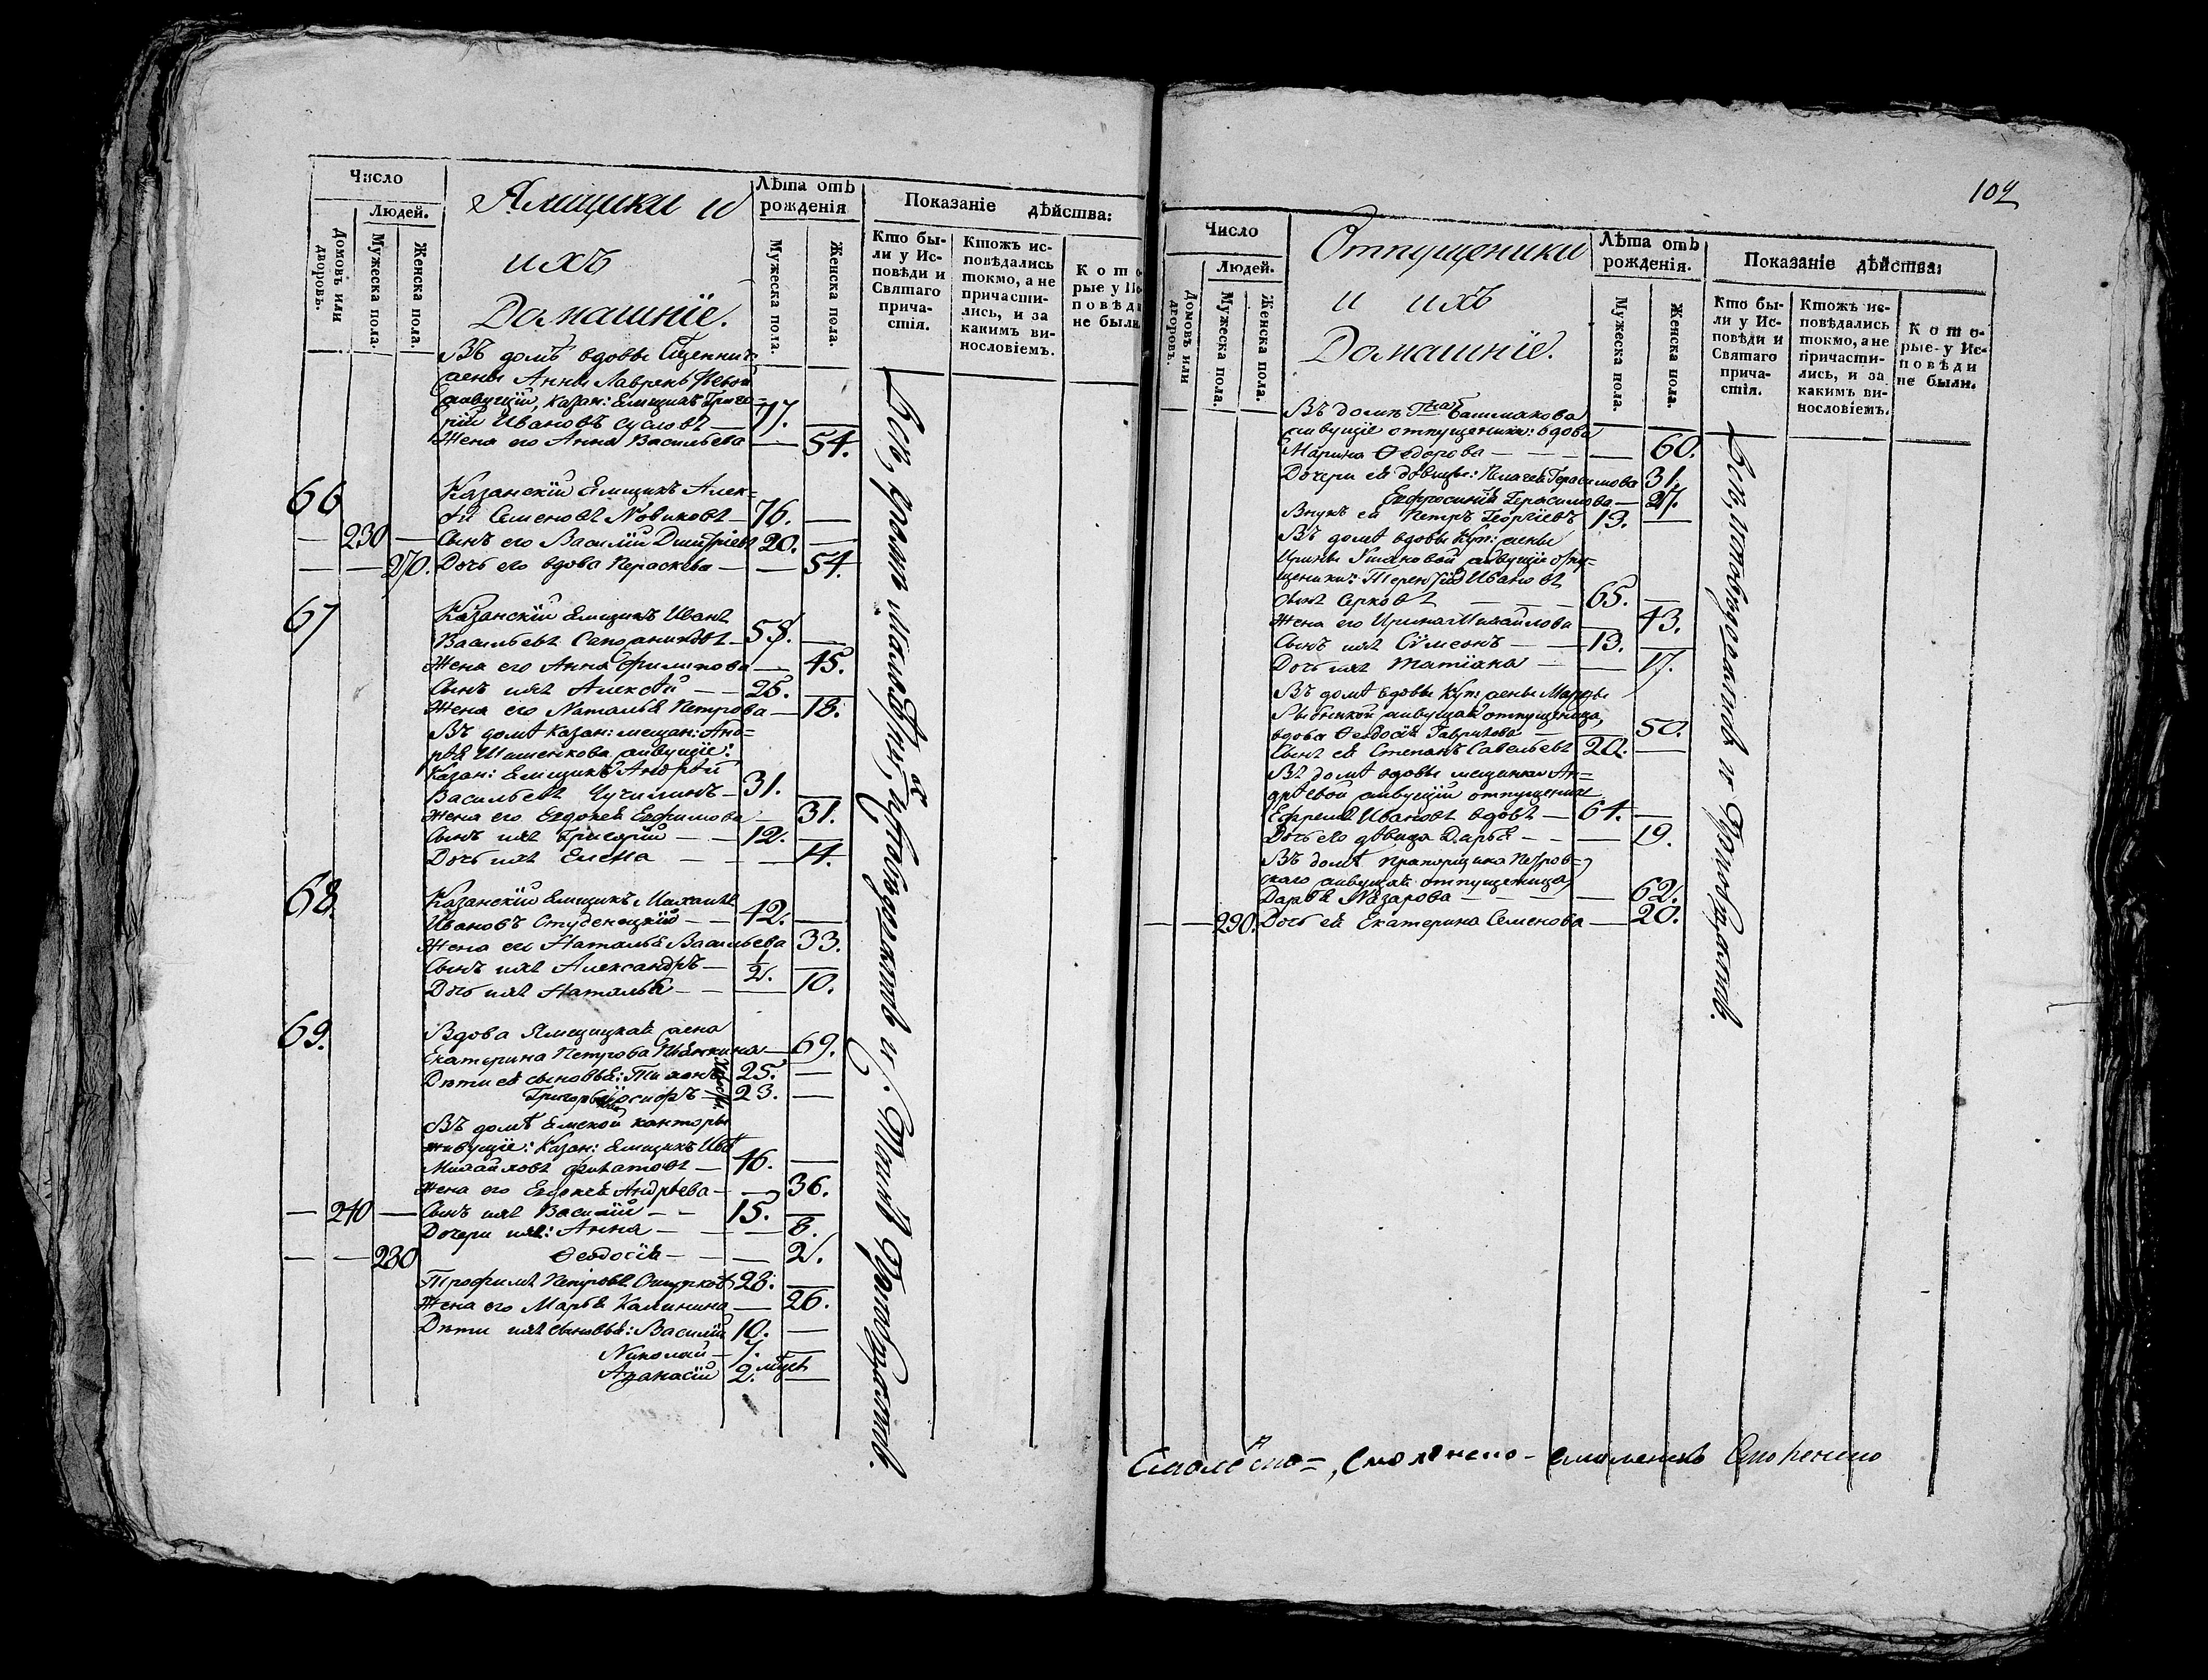 Число
Людей.
Домовъ или дворовъ.
Мужеска пола.
Женска пола.
Ямщики и
ихъ
Домашніе.
Лѣта отъ
рожденія
Мужеска пола.
Женска пола.
Показаніе дѣйства:
Кто бы-
ли у Ис-
повѣди и
Святаго
прича-
стія.
Ктожъ ис-
повѣдались
токмо, а не
причасти-
лись, и за
какимъ ви-
нословіемъ.
Кото
рые у Ис
повѣди
не были
Въ домѣ вдовы
жены Анны
живущій, Казан: Ямщикъ Григо-
рій Ивановъ Сусловъ — 77.
Жена его Анна Васильева — 54.
66 Казанскій Ямщикъ Алек-
ѣй Семеновъ Новиковъ — 76. —
— 230 — Сынъ его Василій Дмитріевъ 20. —
— — 270. Дочь его вдова Параскева — — 54.
67 Казанскій Ямщикъ Иванъ
Васильевъ Сапожниковъ — 58. —
Жена его Анна Филипова — 45.
Сынъ ихъ Алексѣй — — 25. —
Жена его Наталья Петрова — 18.
Въ домѣ Казан: мещан: Анд-
рѣя Шашенкова живущіе:
Казан: Ямщикъ Андрѣй
Васильевъ Чучилинъ — 31.
Жена его Евдокія Евфимова — 31.
Сынъ ихъ Григорій — — 12. —
Дочь ихъ Елена — — — 11.
68. Казанскій Ямщикъ Михаилъ
Ивановъ Студенецкій — — 42. —
Жена его Наталья Васильева 33.
Сынъ ихъ Александръ — 1/2. —
Дочь ихъ Наталья — — — 10.
69. Вдова Ямщицкая жена
Екатерина Петрова Пѣнкина — 69.
Дѣти ея сыновья: Тихонъ 25. —
Григорьевы Іосифъ — 23. —
Въ домѣ Ямской конторы
живущіе: Казан: Ямщикъ Ив:
Михайловъ Филатовъ — 46. —
Жена его Евдокія Андрѣева — — 36.
— 240 — Сынъ ихъ Василій — — 15. —
Дочери ихъ: Анна — — — 8.
— — 280 Ѳеодосія — — — 2.
Трофимъ Петровъ 28. —
Жена его Марья Калинина — 26.
Дѣти ихъ сыновья: Василій 10. —
Николай — 7. —
Аѳанасій 2. мцѣ —
Всѣ, кромѣ малолѣтныхъ, исповѣдались и Св. Таинъ Пріобщались.
102
Число
Людей.
Домовъ или дворовъ.
Мужеска пола.
Женска пола.
Отпущеники
и ихъ
Домашніе.
Лѣта отъ
рожденія.
Мужеска пола.
Женска пола.
Показаніе дѣйства:
Кто бы-
ли у Ис-
повѣди и
Святаго
прича-
стія.
Ктожъ ис-
повѣдались
токмо, а не
причасти-
лись, и за
какимъ ви-
нословіемъ.
Кото-
рые у Ис-
повѣди
не были.
Въ домѣ Гна Башмакова
живущіе отпущеники: вдова
Марина Ѳедорова — — — — 60.
Дочери ея дѣвицы: Пелагея Герасимова 31.
Евфросинія Герасимова — 27.
Внукъ ея Петръ Георгіевъ 13. —
Въ домѣ вдовы Куп: жены
Ирины живущіе отпу-
щеники: Терентій Ивановъ
сынъ Серковъ — — — 65. —
Жена его Ирина Михайлова — 43.
Сынъ ихъ Сѵмеонъ — — 13. —
Дочь ихъ Татіана — — 17.
Въ домѣ вдовы Куп: жены Марѳы
живущая отпущеница,
вдова Ѳеодосія Гаврилова — 50.
Сынъ ея Степанъ Савельевъ 20. —
Въ домѣ вдовы мещанки Ан-
дрѣевой живущій отпущеникъ
Ефремъ Ивановъ вдовъ — 64. —
Дочь его дѣвица Дарья — — 19.
Въ домѣ прапорщика Петров-
скаго живущая отпущеница,
Дарья Назарова — — — — 62.
— — 290. Дочь ея Екатерина Семенова — 20.
Всѣ, исповѣдались и Пріобщались.